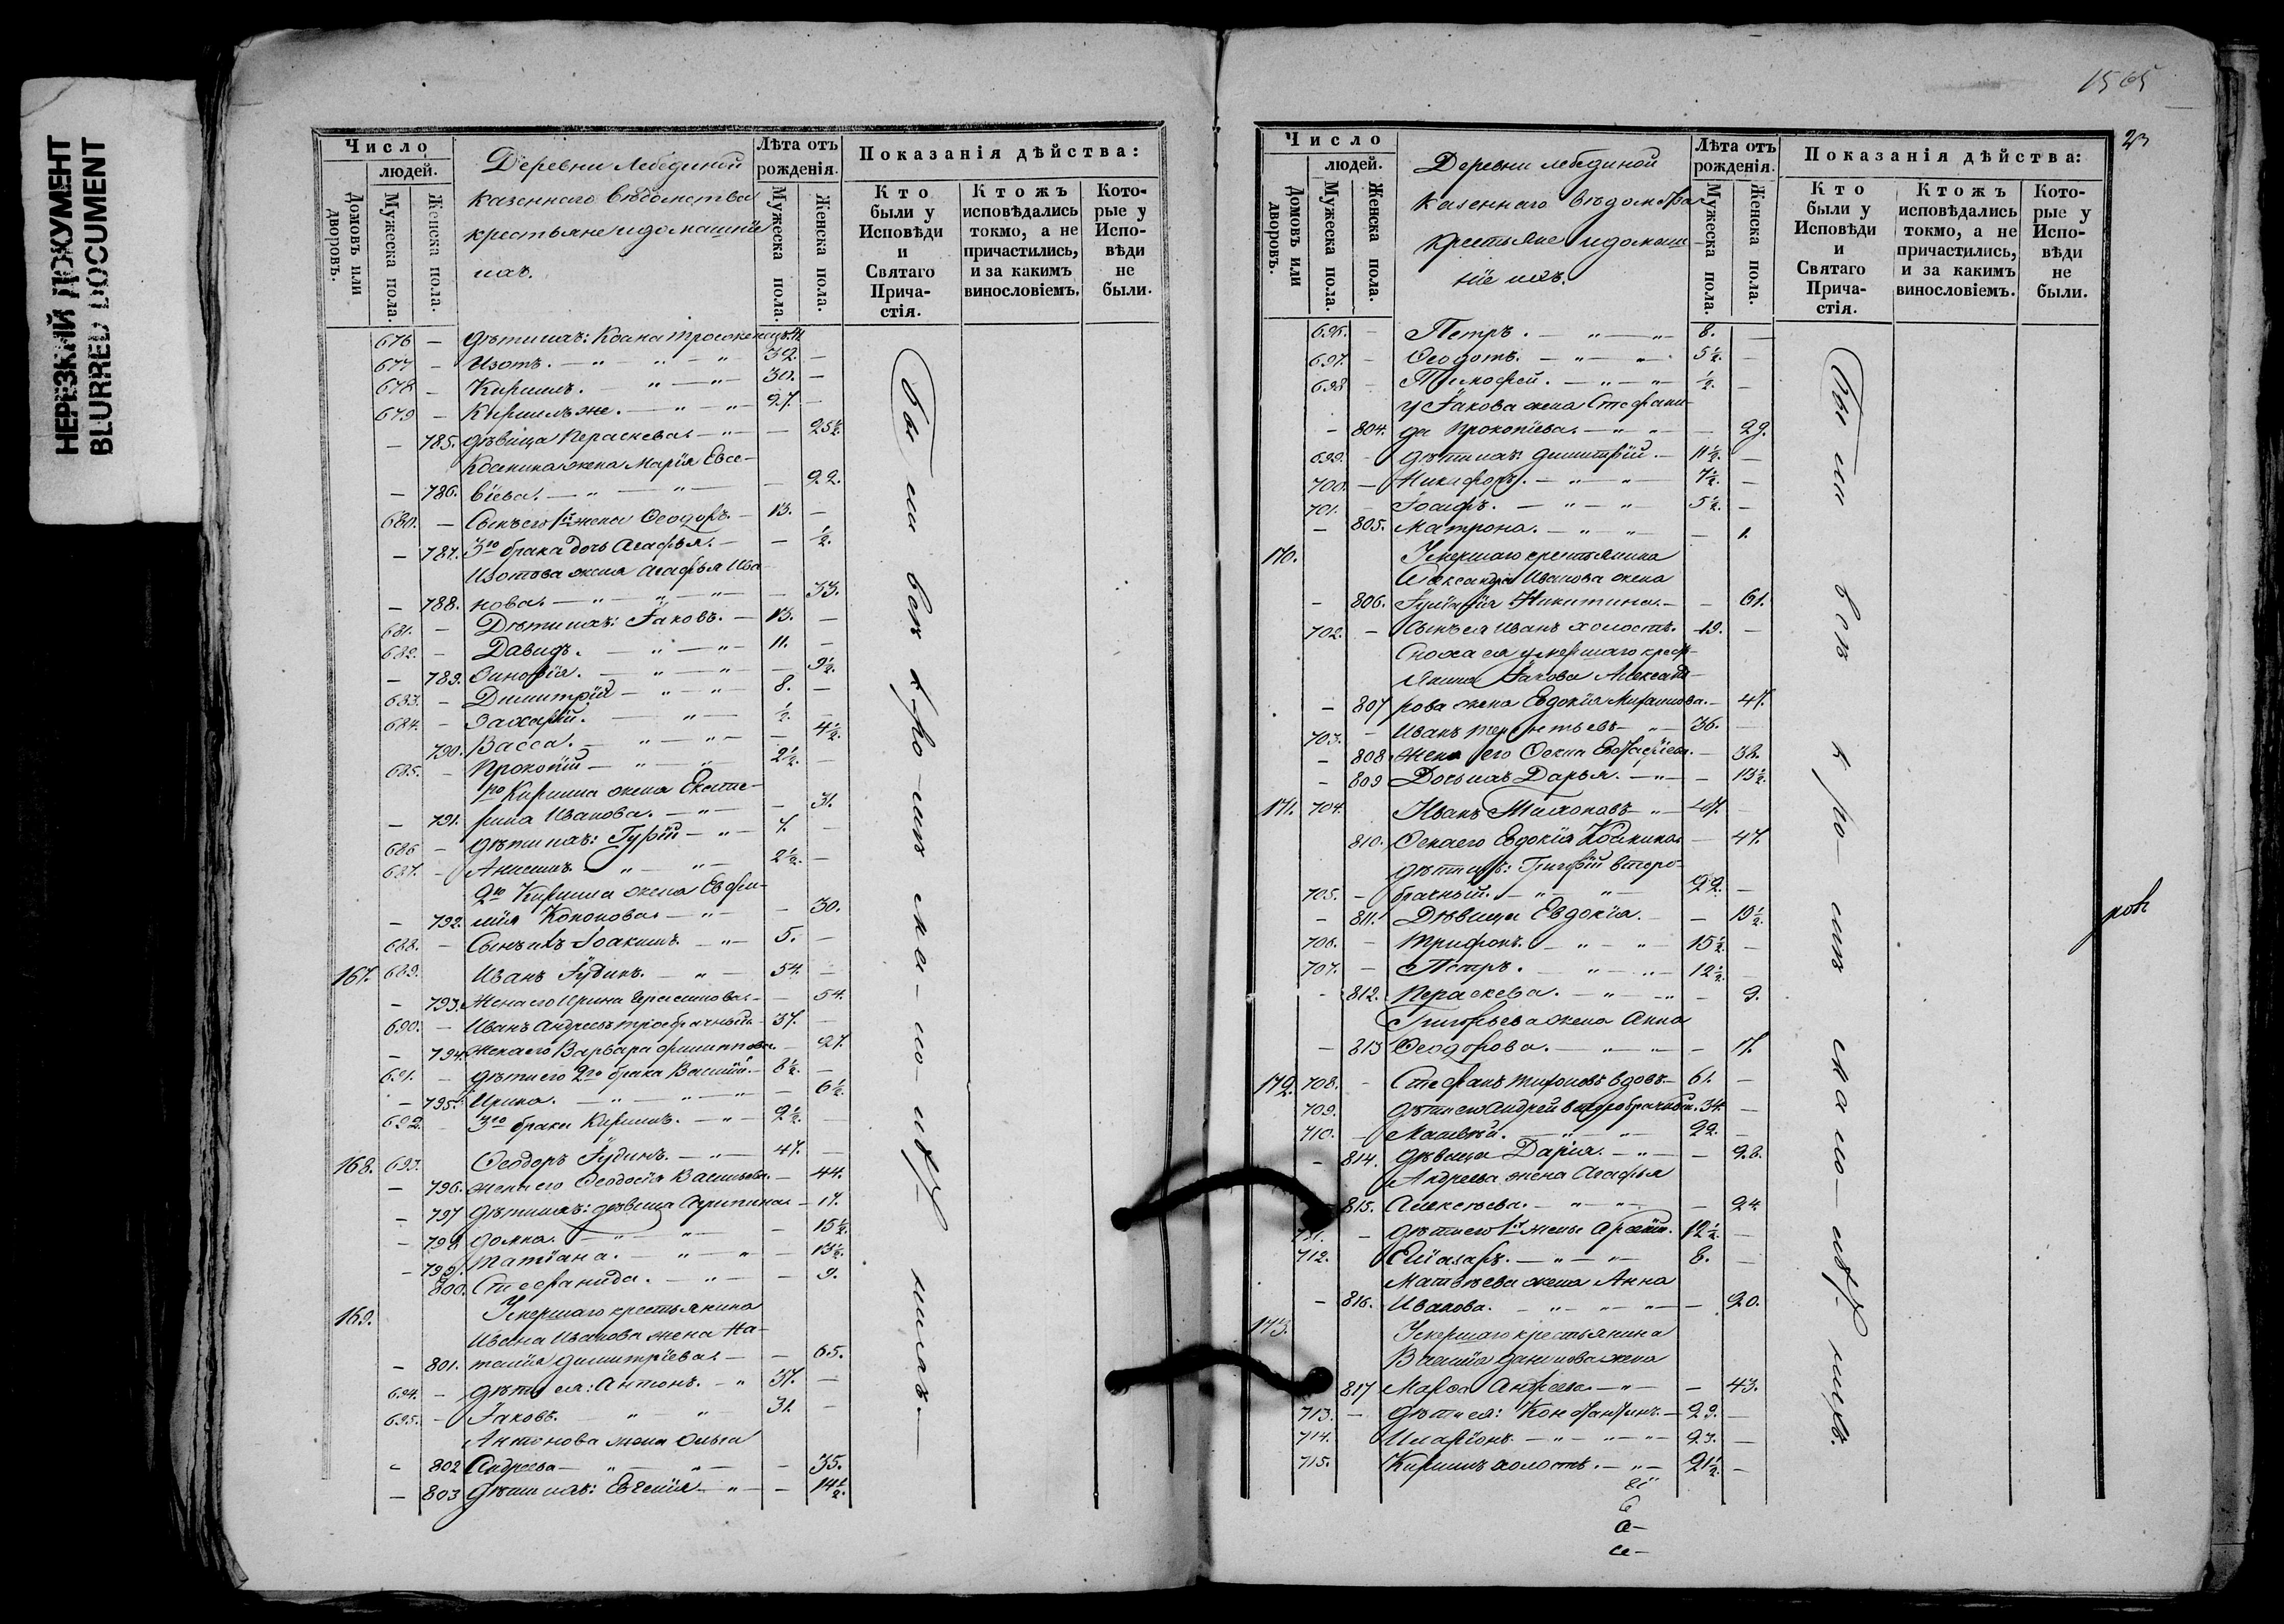 НЕРЕЗКИЙ ДОКУМЕНТ
BLURRED DOCUMENT
Число
людей.
Домовъ или дворовъ.
Мужеска пола.
Женска пола.
Деревни Лебединой
казеннаго вѣдомства
крестьяне и домашніе
ихъ.
Лѣта отъ рожденія.
Мужеска пола.
Женска пола.
Показанія дѣйства:
Кто были у Исповѣди и Святаго Прича- стія.
Ктожъ исповѣдались токмо, а не причастились, и за какимъ винословіемъ.
Кото- рые у Испо- вѣди не были.
676 — дѣти ихъ:
677 — Изотъ. — 32. —
678 — Кириллъ. — 30. —
679 — Кириллъ же. — 27. —
— 785. дѣвица Пераскева. — 25½
жена Марія Евсе-
— 786. віева. — 22.
680. — Сынъ его 1й жены Ѳеодоръ. — 13. —
— 787. 3го брака дочь Агафья. — ½.
Изотова жена Агафья Ива
— 788. нова. — 33.
681. — Дѣти ихъ: Іаковъ. — 13. —
682. — Давидъ. — 11. —
— 789. — 9½.
683. — Димитрій — 8. —
684. — Захарій. — ½. —
790. Васса. — 4½.
685. — Прокопій — 2½. —
1го Кирилла жена Екате-
— 791. рина Иванова. — 31.
686 — дѣти ихъ: Гурій — 7. —
687. — — 2½. —
2го Кирилла жена Евфи-
— 792. мия Кононова. — 30.
688. — Сынъ ихъ Іоакимъ. — 5. —
167. 689. Иванъ Іудинъ. — 54. —
— 793. Жена его Ирина Герасимова. — 54.
690. — Иванъ Андреевъ троебрачный. — 37. —
— 794. жена его Варвара Филиппова. — 27.
691. — дѣти его 2го брака Василій. — 8½. —
— 795. Ирина. — 6½.
692 3го брака Кириллъ. — 2½. —
168. 693. Ѳеодоръ Іудинъ. — 47. —
— 796. жена его Ѳеодосія Васильева. — 44.
— 797 дѣти ихъ: дѣвица Агрипина — 17.
— 798 Домна. — 15½.
— 799. Татіана. — 13½.
800. Стефанида. — 9.
169. Умершаго крестьянина
Ивана Иванова жена На-
— 801. талія Димитріева. — 65.
694. — дѣти ея: Антонъ. — 37. —
695. — Іаковъ. — 31. —
Антонова жена Ольга
— 802 Андреева — 35.
— 803 дѣти ихъ: Евгенія — 14½.
Были всѣ кромѣ мало-лѣтнихъ. —
1565
23
Число
людей.
Домовъ или дворовъ.
Мужеска пола.
Женска пола.
Деревни Лебединой
казеннаго вѣдомства
крестьяне и домаш-
ніе ихъ.
Лѣта отъ рожденія.
Мужеска пола.
Женска пола.
Показанія дѣйства:
Кто были у Исповѣди и Святаго Прича- стія.
Ктожъ исповѣдались токмо, а не причастились, и за какимъ винословіемъ.
Кото- рые у Испо- вѣди не были.
696. — Петръ. — 8. —
697. — Ѳеодотъ. — 5½. —
698 — Тимофей. — ½. —
у Іакова жена Стефани-
— 804. да Прокопіева. — 29.
699. — дѣти ихъ: Димитрій. — 11½. —
700. — Никифоръ. — 7½. —
701. — Іосифъ. — 5½. —
— 805. Матрона. — 1.
170. Умершаго крестьянина
Александра Иванова жена
— 806. Никитина. — 61.
702. — Сынъ ея Иванъ холостъ. — 19. —
Сноха ея умершаго крест-
янина Іакова Александ-
— 807 рова жена Евдокія — 47.
703. — Иванъ Терентьевъ — 36. —
— 808 Жена его — 38.
— 809 Дочь ихъ Дарья. — 13½.
171. 704. Иванъ — 47. —
810. Жена его Евдокія — 47.
дѣти ихъ: Григорій второ-
705. — брачный. — 22. —
— 811. Дѣвица Евдокія. — 19½.
706. — Трифонъ. — 15½. —
707. — Петръ. — 12½. —
— 812. Пераскева. — 9.
Григорьева жена Анна
— 813 Ѳеодорова. — 17.
172. 708. — Стефанъ Тихоновъ вдовъ — 61. —
709. дѣти его Андрей второбрачный. 34. —
710. — Матвѣй. — 22. —
— 814. дѣвица Дарія. — 28.
Андреева жена Агафья
815. Алексѣева. — 24
711. — дѣти его 1й жены 12½. —
712. Елiазаръ. — 8. —
Матвѣева жена Анна
— 816. Иванова. — 20.
173. Умершаго крестьянина
жена
817 Марѳа Андреева — 43.
713. — дѣти ея: Константинъ. — 29. —
714. Иларіонъ. — 23. —
715. Кириллъ холостъ. — 21½. —
Были всѣ кромѣ мало-лѣтнихъ.